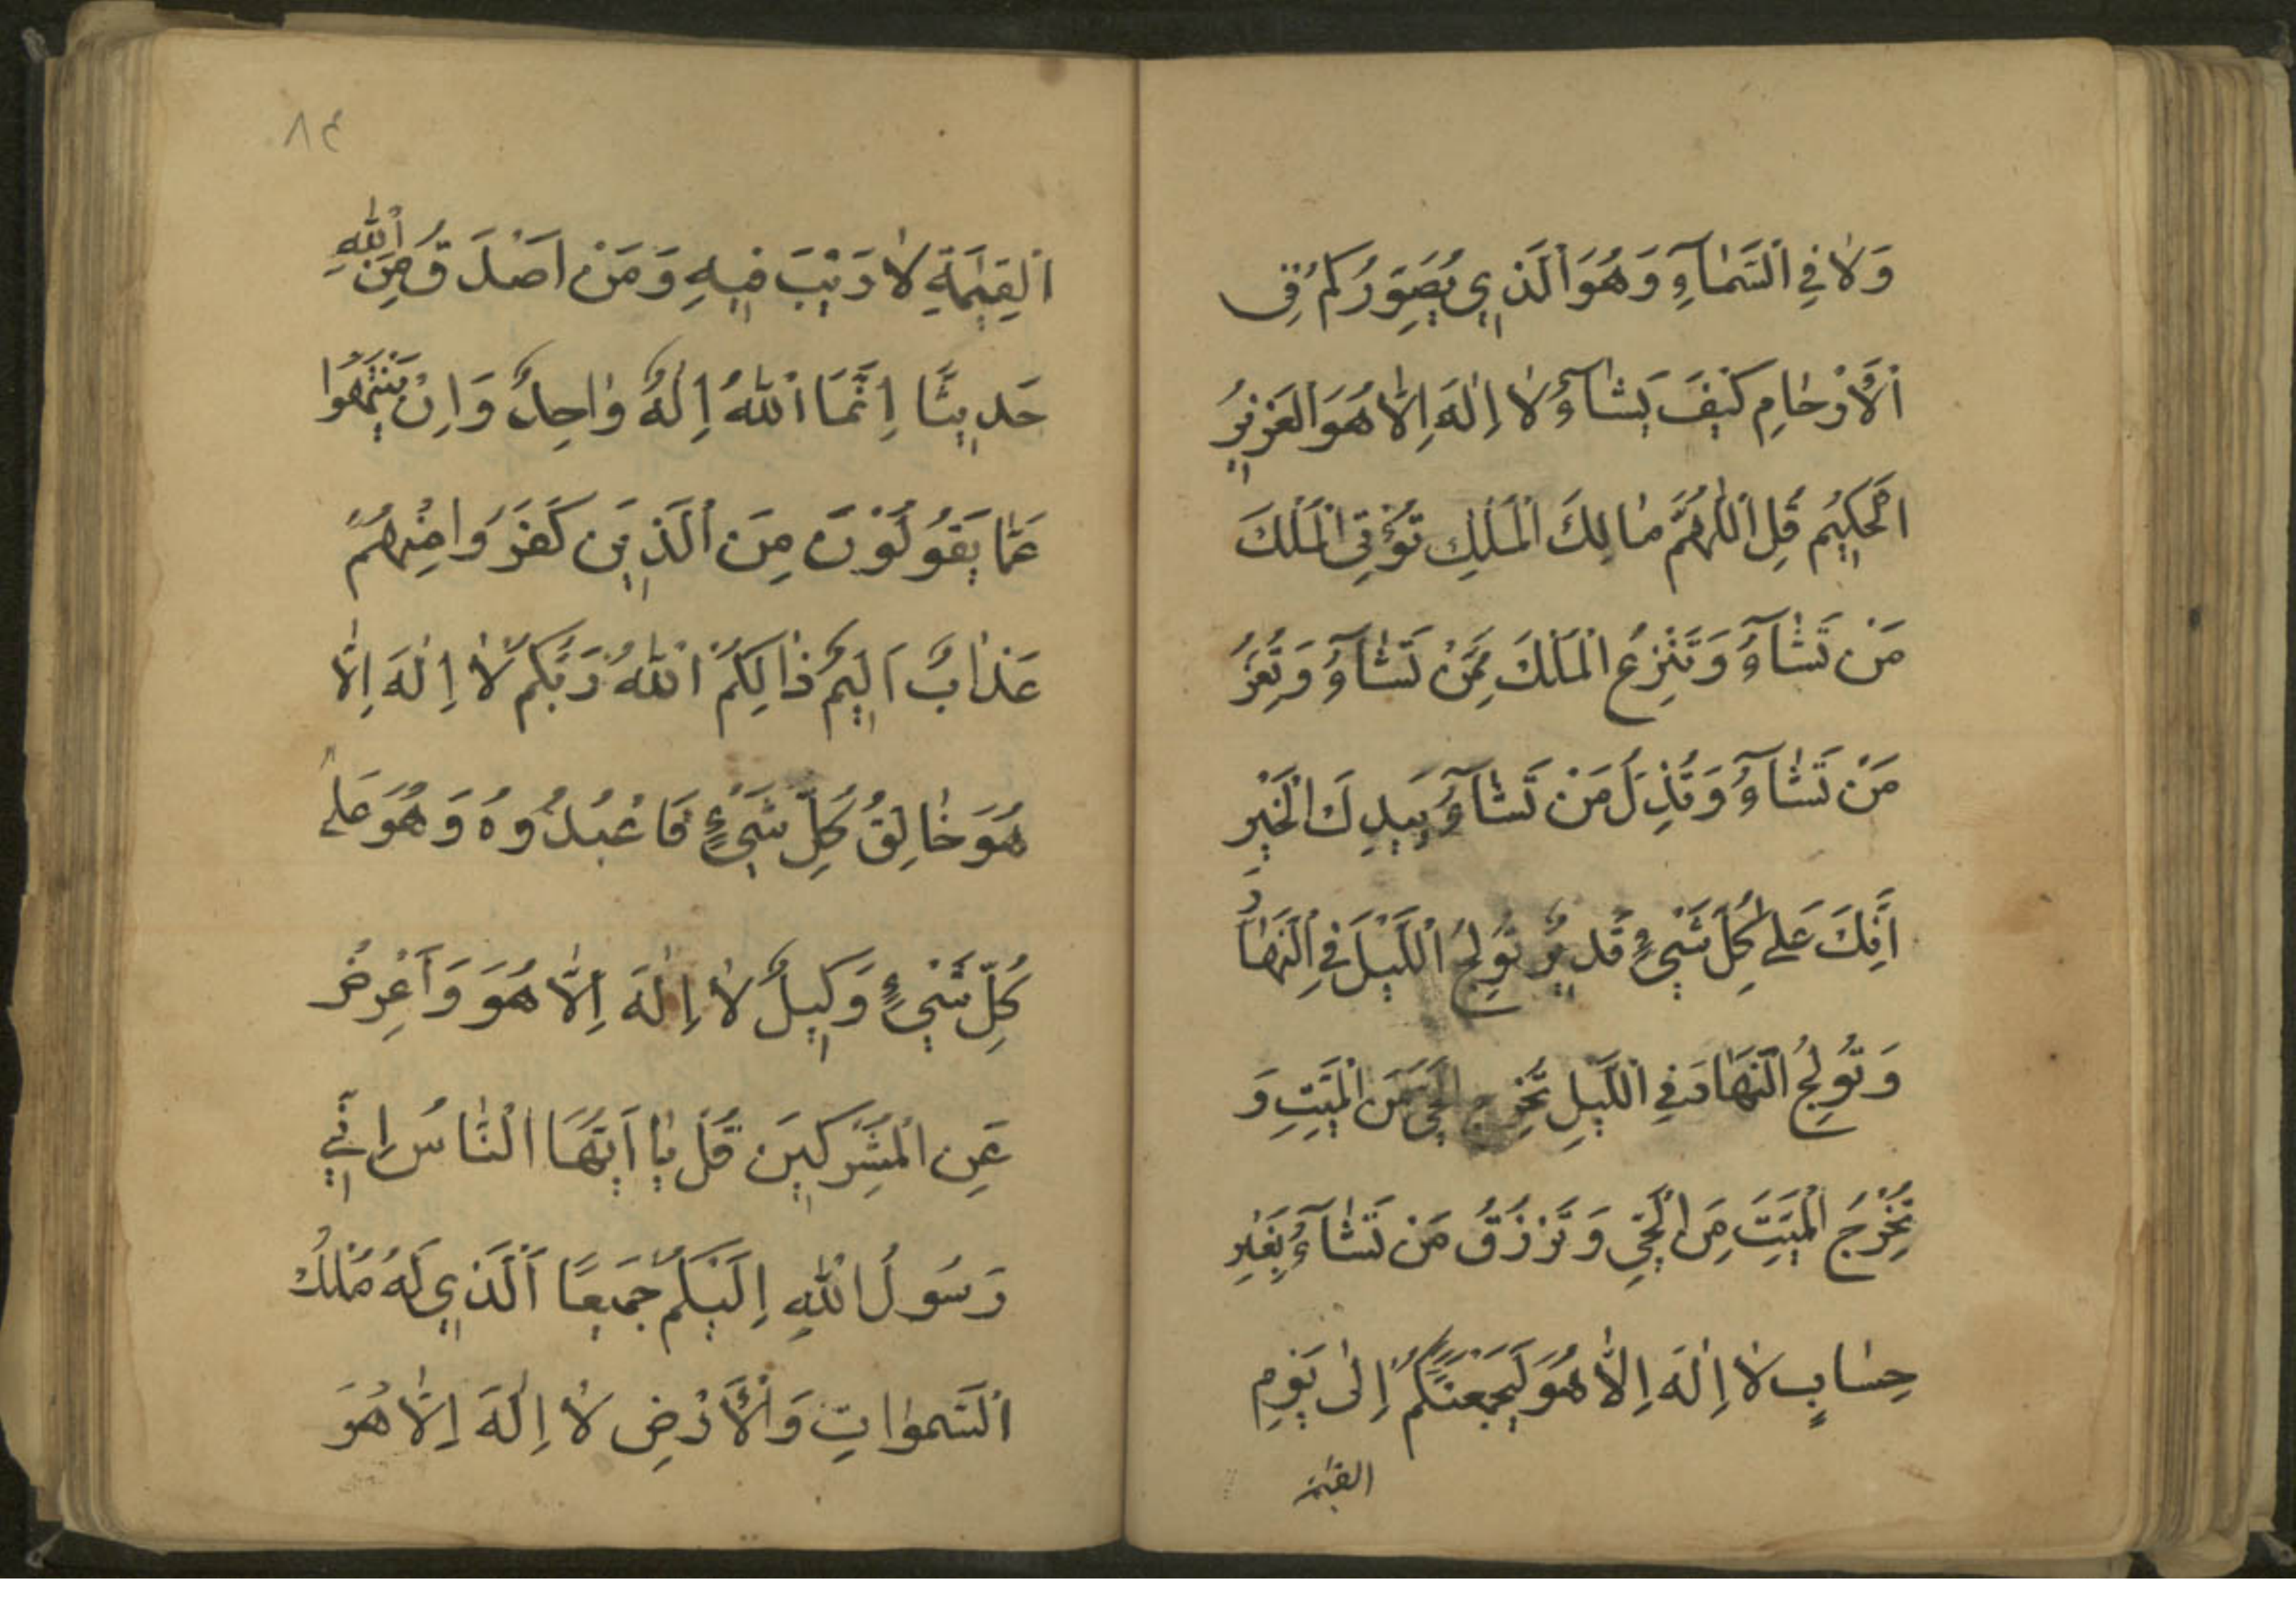 وَلاٰ فِي اَلسَّمٰاۤءِ وَهُوَ اَلَّذٖي يُصَوِّرُكُمْ فِى
اَلْأَرْحٰامِ كَيْفَ يَشٰاۤءُ لاٰ اِلٰهَ اِلاّٰ هُوَ الْعَزٖيزُ
الْحَكٖيمُ قُلِ اَللّٰهُمَّ مٰالِكَ الْمُلْكِ تُؤْتِى الْمُلْكَ
مَنْ تَشٰاۤءُ وَتَنْزِعُ الْمُلْكَ مِمَّنْ تَشٰاۤءُ وَتُعِزُّ
مَنْ تَشٰاۤءُ وَتُذِلُّ مَنْ تَشٰاۤءُ بِيَدِكَ الْخَيْرِ
اِنَّكَ عَلىٰ كُلِّ شَيْءٍ قَدٖيرٌ تُولِجُ اَللَّيْلَ فِي اَلنَّهٰارِ
وَتُولِجُ النَّهٰارَ فِي اَللَّيْلِ تُخْرِجُ الْحَيَّ مِنَ الْمَيِّتِ وَ
تُخْرِجُ الْمَيِّتَ مِنَ الْحَيِّ وَتَرْزُقُ مَنْ تَشٰاۤءُ بِغَيْرِ
حِسٰابٍ لاٰ اِلٰهَ اِلاّٰ هُوَ لَيَجْمَعَنَّكُمْ اِلىٰ يَوْمِ
القيٰمة
٨٤
اَلْقِيٰمَةِ لاٰ رَيْبَ فٖيهِ وَمَنْ اَصْدَقُ مِنَ اَللّٰهِ
حَدٖيثًا اِنَّمَا اَللّٰهُ اِلٰهٌ وٰاحِدٌ وَاِنْ يَنْتَهُوا
عَمّٰا يَقُولُوْنَ مِنَ اَلَّذٖينَ كَفَرُوا مِنْهُمْ
عَذٰابٌ اَلٖيمٌ ذٰالِكُمْ اَللّٰهُ رَبُّكُمْ لاٰ اِلٰهَ اِلاّٰ
هُوَ خٰالِقُ كُلِّ شَيْءٍ فَاعْبُدُوهُ وَهُوَ عَلىٰ
كُلِّ شَيْءٍ وَكٖيلٌ لاٰ اِلٰهَ اِلاّٰ هُوَ وَاَعْرِضْ
عَنِ الْمُشْرِكٖينَ قُلْ يٰا اَيُّهَا النّٰاسُ اِنّٖي
رَسُولُ اللّٰهِ اِلَيْكُمْ جَمٖيعًا اَلَّذٖي لَهُ مُلْكُ
اَلسَّمٰوٰاتِ وَاَلْأَرْضِ لاٰ اِلٰهَ اِلاّٰ هُوَ